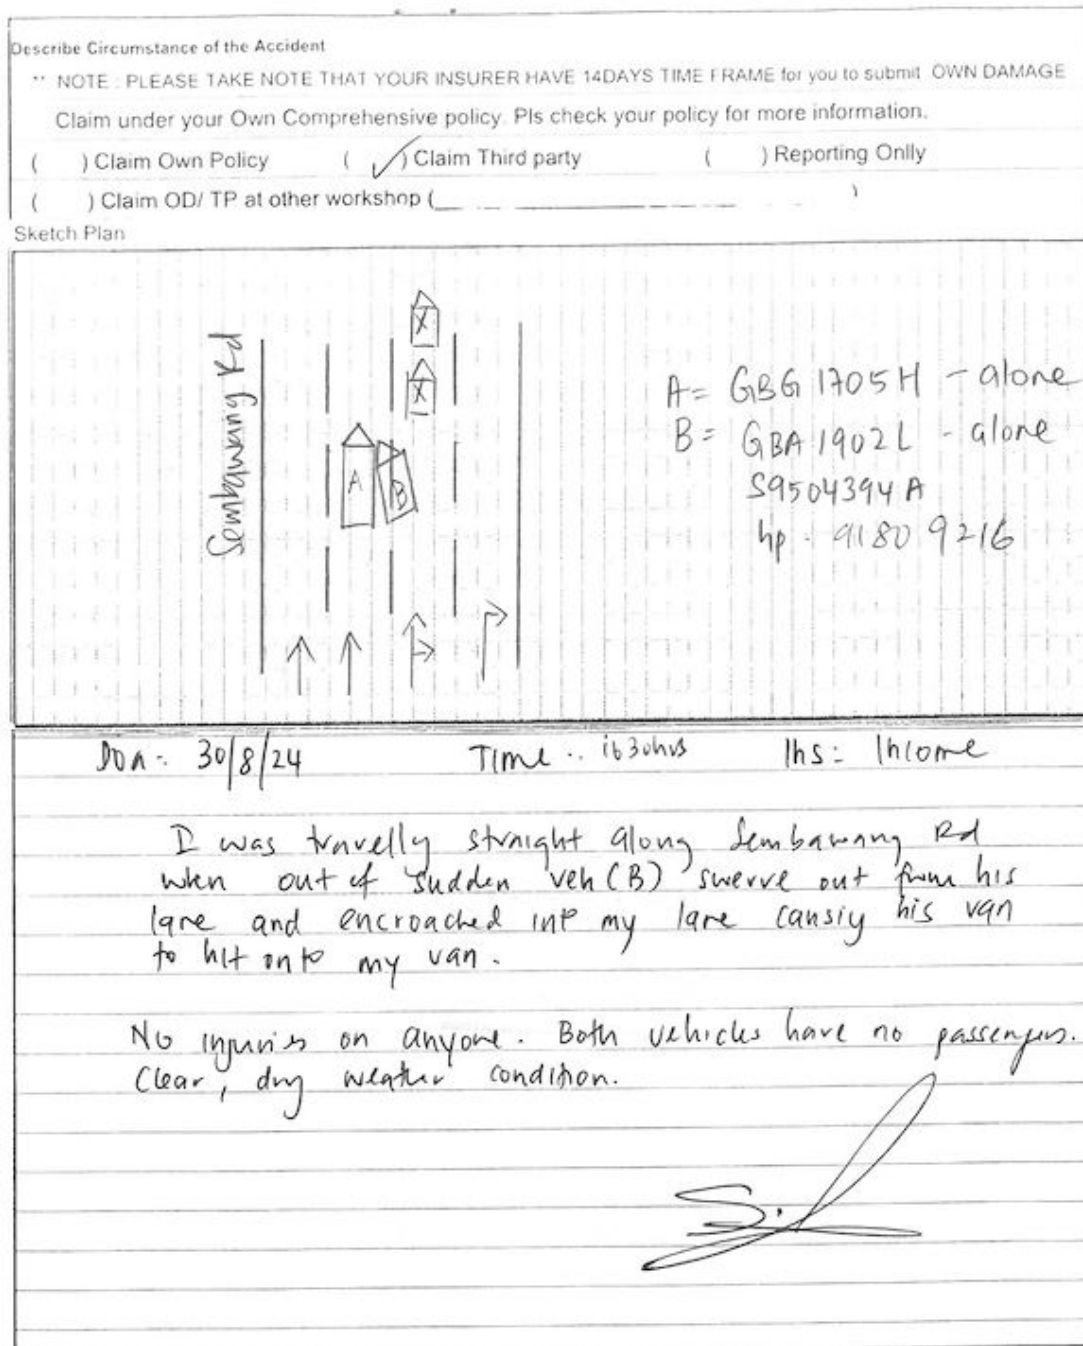 Describe Circumstance of the Accident
** NOTE : PLEASE TAKE NOTE THAT YOUR INSURER HAVE 14DAYS TIME FRAME for you to submit OWN DAMAGE
Claim under your Own Comprehensive policy. Pls check your policy for more information.
( ) Claim Own Policy ( ✓ ) Claim Third party ( ) Reporting Onlly
( ) Claim OD/ TP at other workshop ( )
Sketch Plan
Sembawang Rd
X
X
A
B
A= GBG 1705H - alone
B= GBA 1902L - alone
S9504394A
hp . 9180 9216
DOA : 30/8/24 Time : 1630hrs Ins : Income
I was travelly straight along Sembawang Rd
when out of sudden veh (B) swerve out from his
lane and encroached into my lane causiy his van
to hit onto my van.
No injuries on anyone. Both vehicles have no passengers.
Clear, dry weather condition.